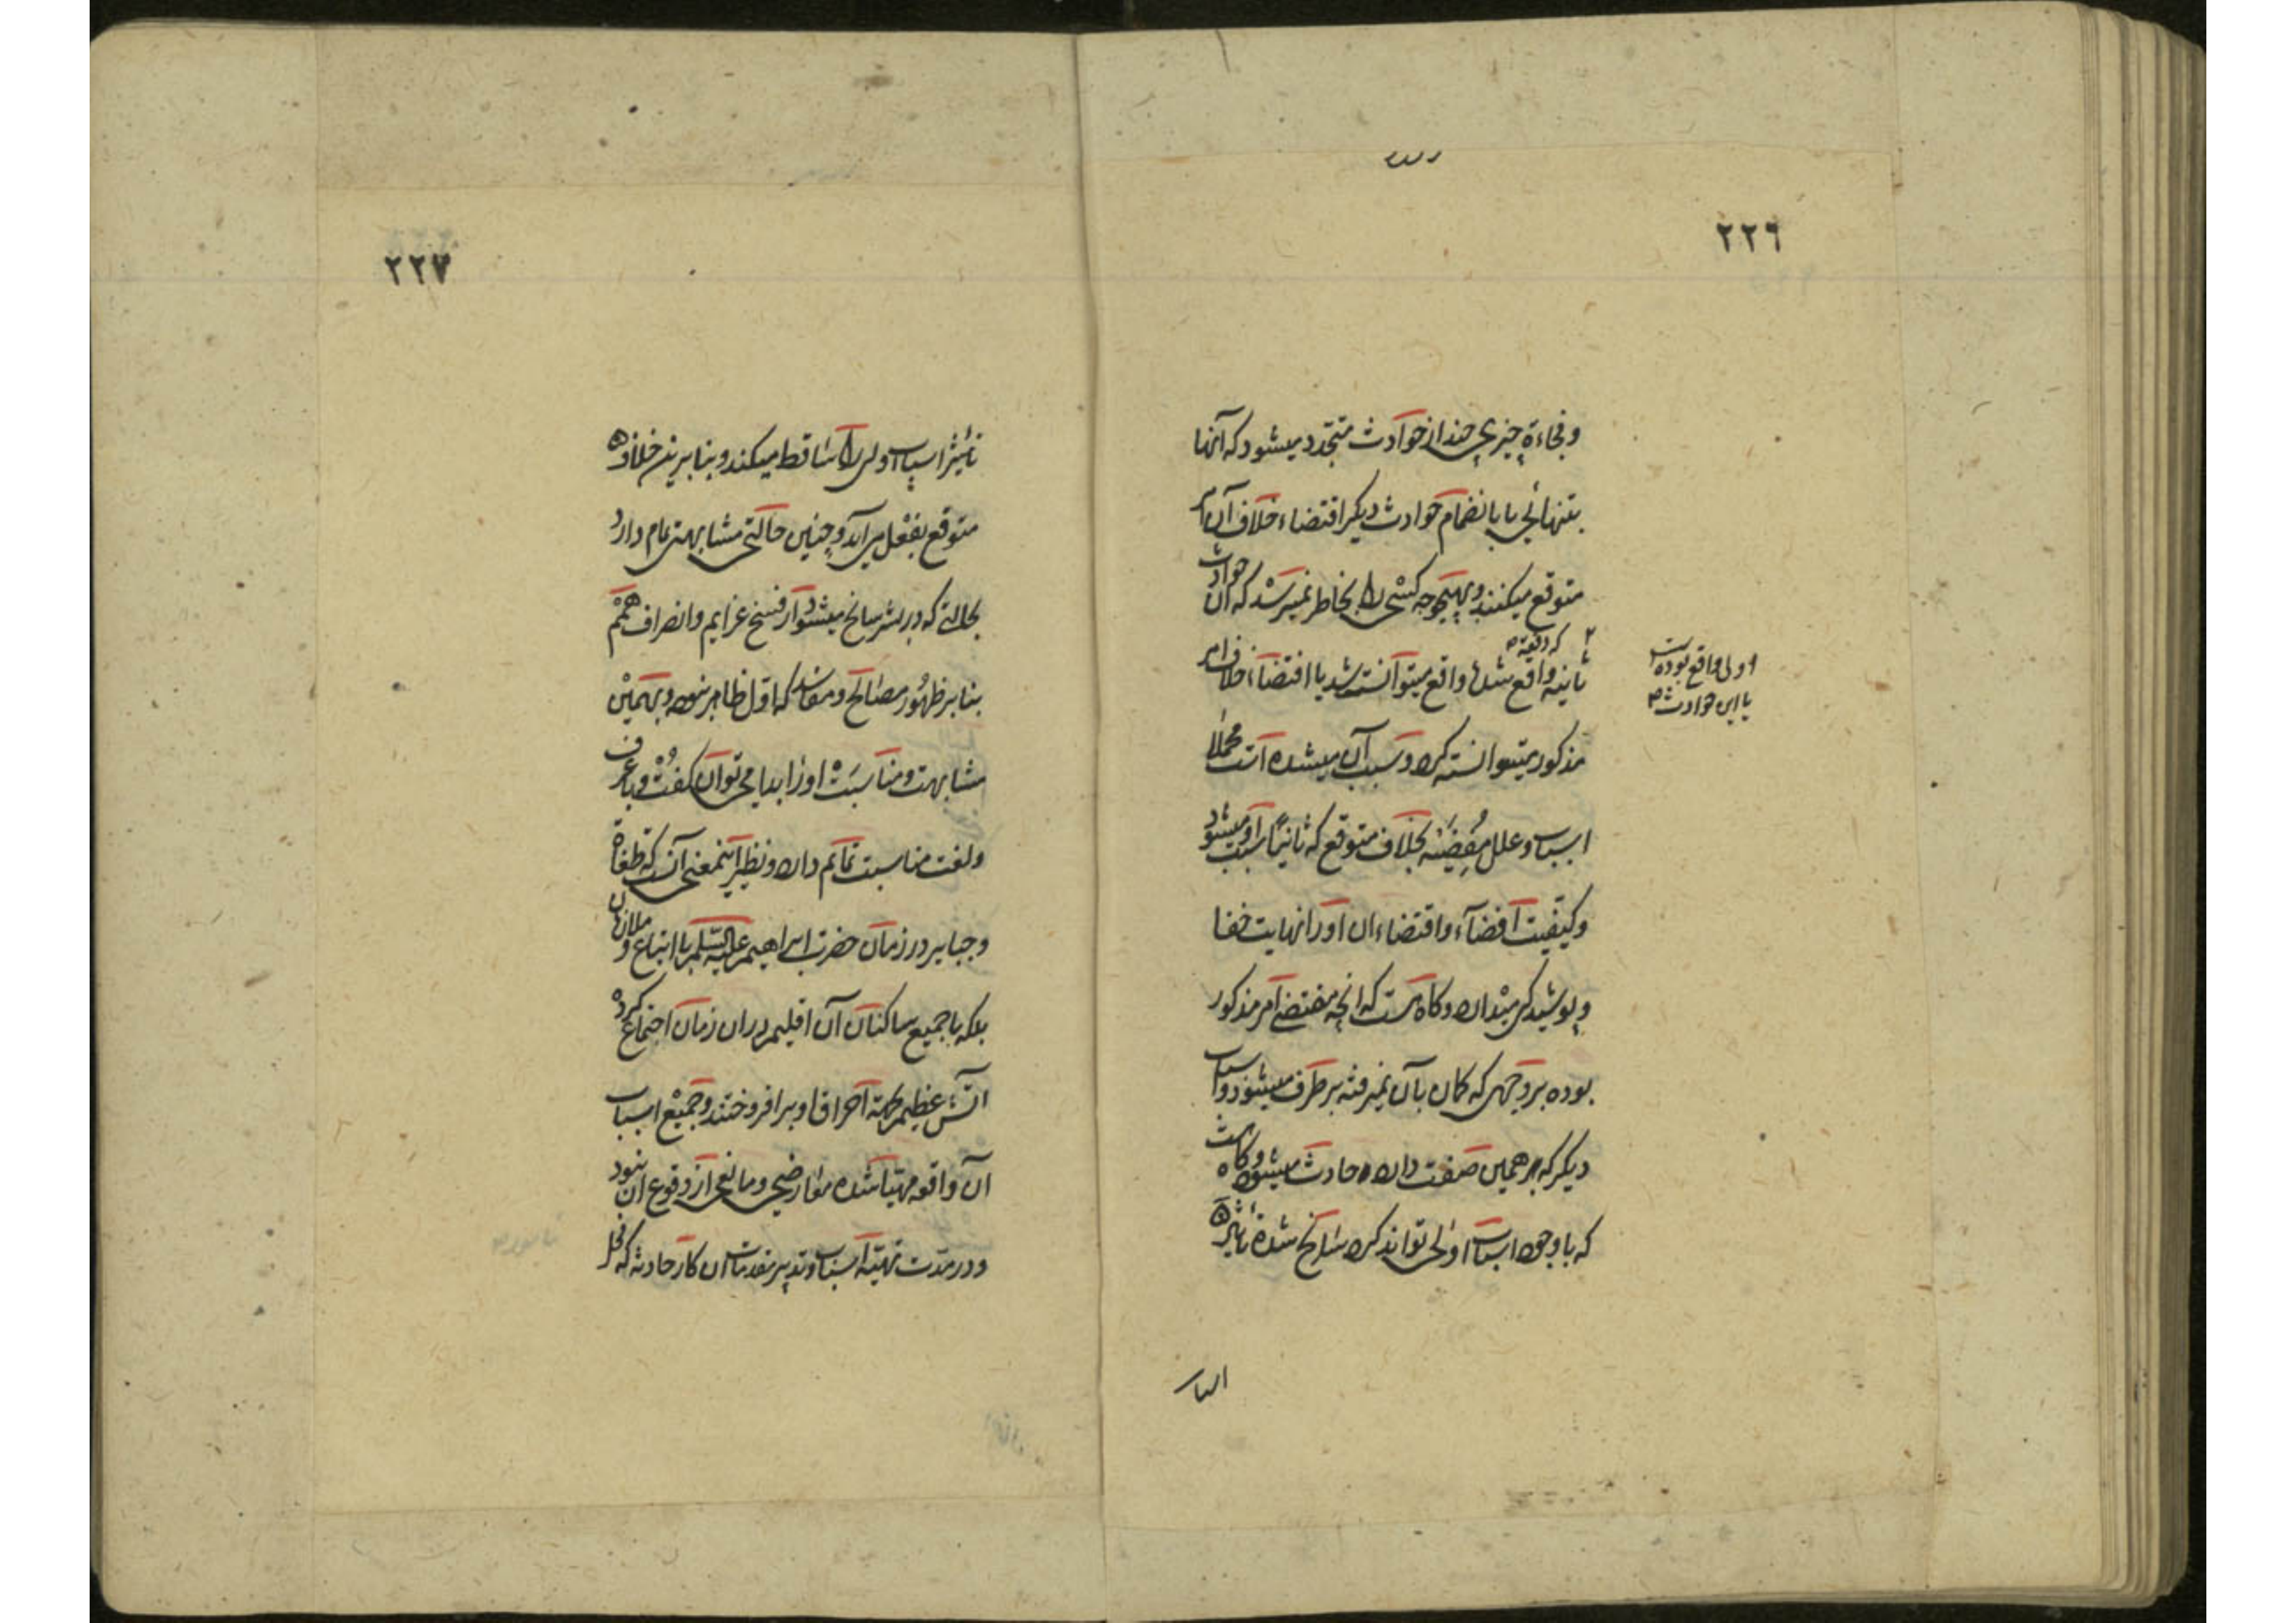 ٢٢٦
وفجاءة چیزی چند از حوادث متجدد میشود که آنها
بتنهائی یا بانضمام حوادث دیگر اقتضاء خلاف آن امر
متوقع میکنند و بهیچوجه کسی را بخاطر نمیرسد که آن حوادث
ثانیه واقع شدها واقع میتوانست شد یا اقتضاء خلاف امر
که دقیقه
اولی واقع بوده است
یا این حوادث
مذکور میتوانسته کرد و سبب آن میشده است مجملا
اسباب و علل مفضیه بخلاف متوقع که ثانیاً سبب او میشود
و کیفیت افضاء و اقتضاء ان اورا نهایت خفا
و پوشیدگی میدارد و گاه هست که انچه مقتضی امر مذکور
بوده بر وجهی که گمان بآن نمیرفته بر طرف میشود و اسباب
دیگر که بر همین صفت دارد حادث میشود و گاه هست
که با وجود اسباب اولی تواند کرد سانح شده تاثیر
٢٢٧
تأثیر اسباب اولی را ساقط میکند و بنا برین خلاف
متوقع بفعل می آید و چنین حالتی مشابهتی تام دارد
بحالتی که در بشر سانح میشود از فسخ عزایم و انصراف همم
بنا بر ظهور مصالح و مفاسد که اول ظاهر نبوده و بهمین
مشابهت و مناسبت او را بدا می توان گفت و با عرف
و لغت مناسبت تمام دارد و نظیر اینمعنی آن که طغاة
و جبابر در زمان حضرت ابراهیم علیه السّلم با اتباع و ملازمان
بلکه با جمیع ساکنان آن اقلیم در ان زمان اجتماع کرده
اتش عظیم بجهة احراق او بر افروختند و جمیع اسباب
ان واقعه مهیا شده معارضی و مانعی از وقوع ان نبود
و در مدت تهیّه اسباب و تدبیر مقدمات ان کار حادثه که مخل